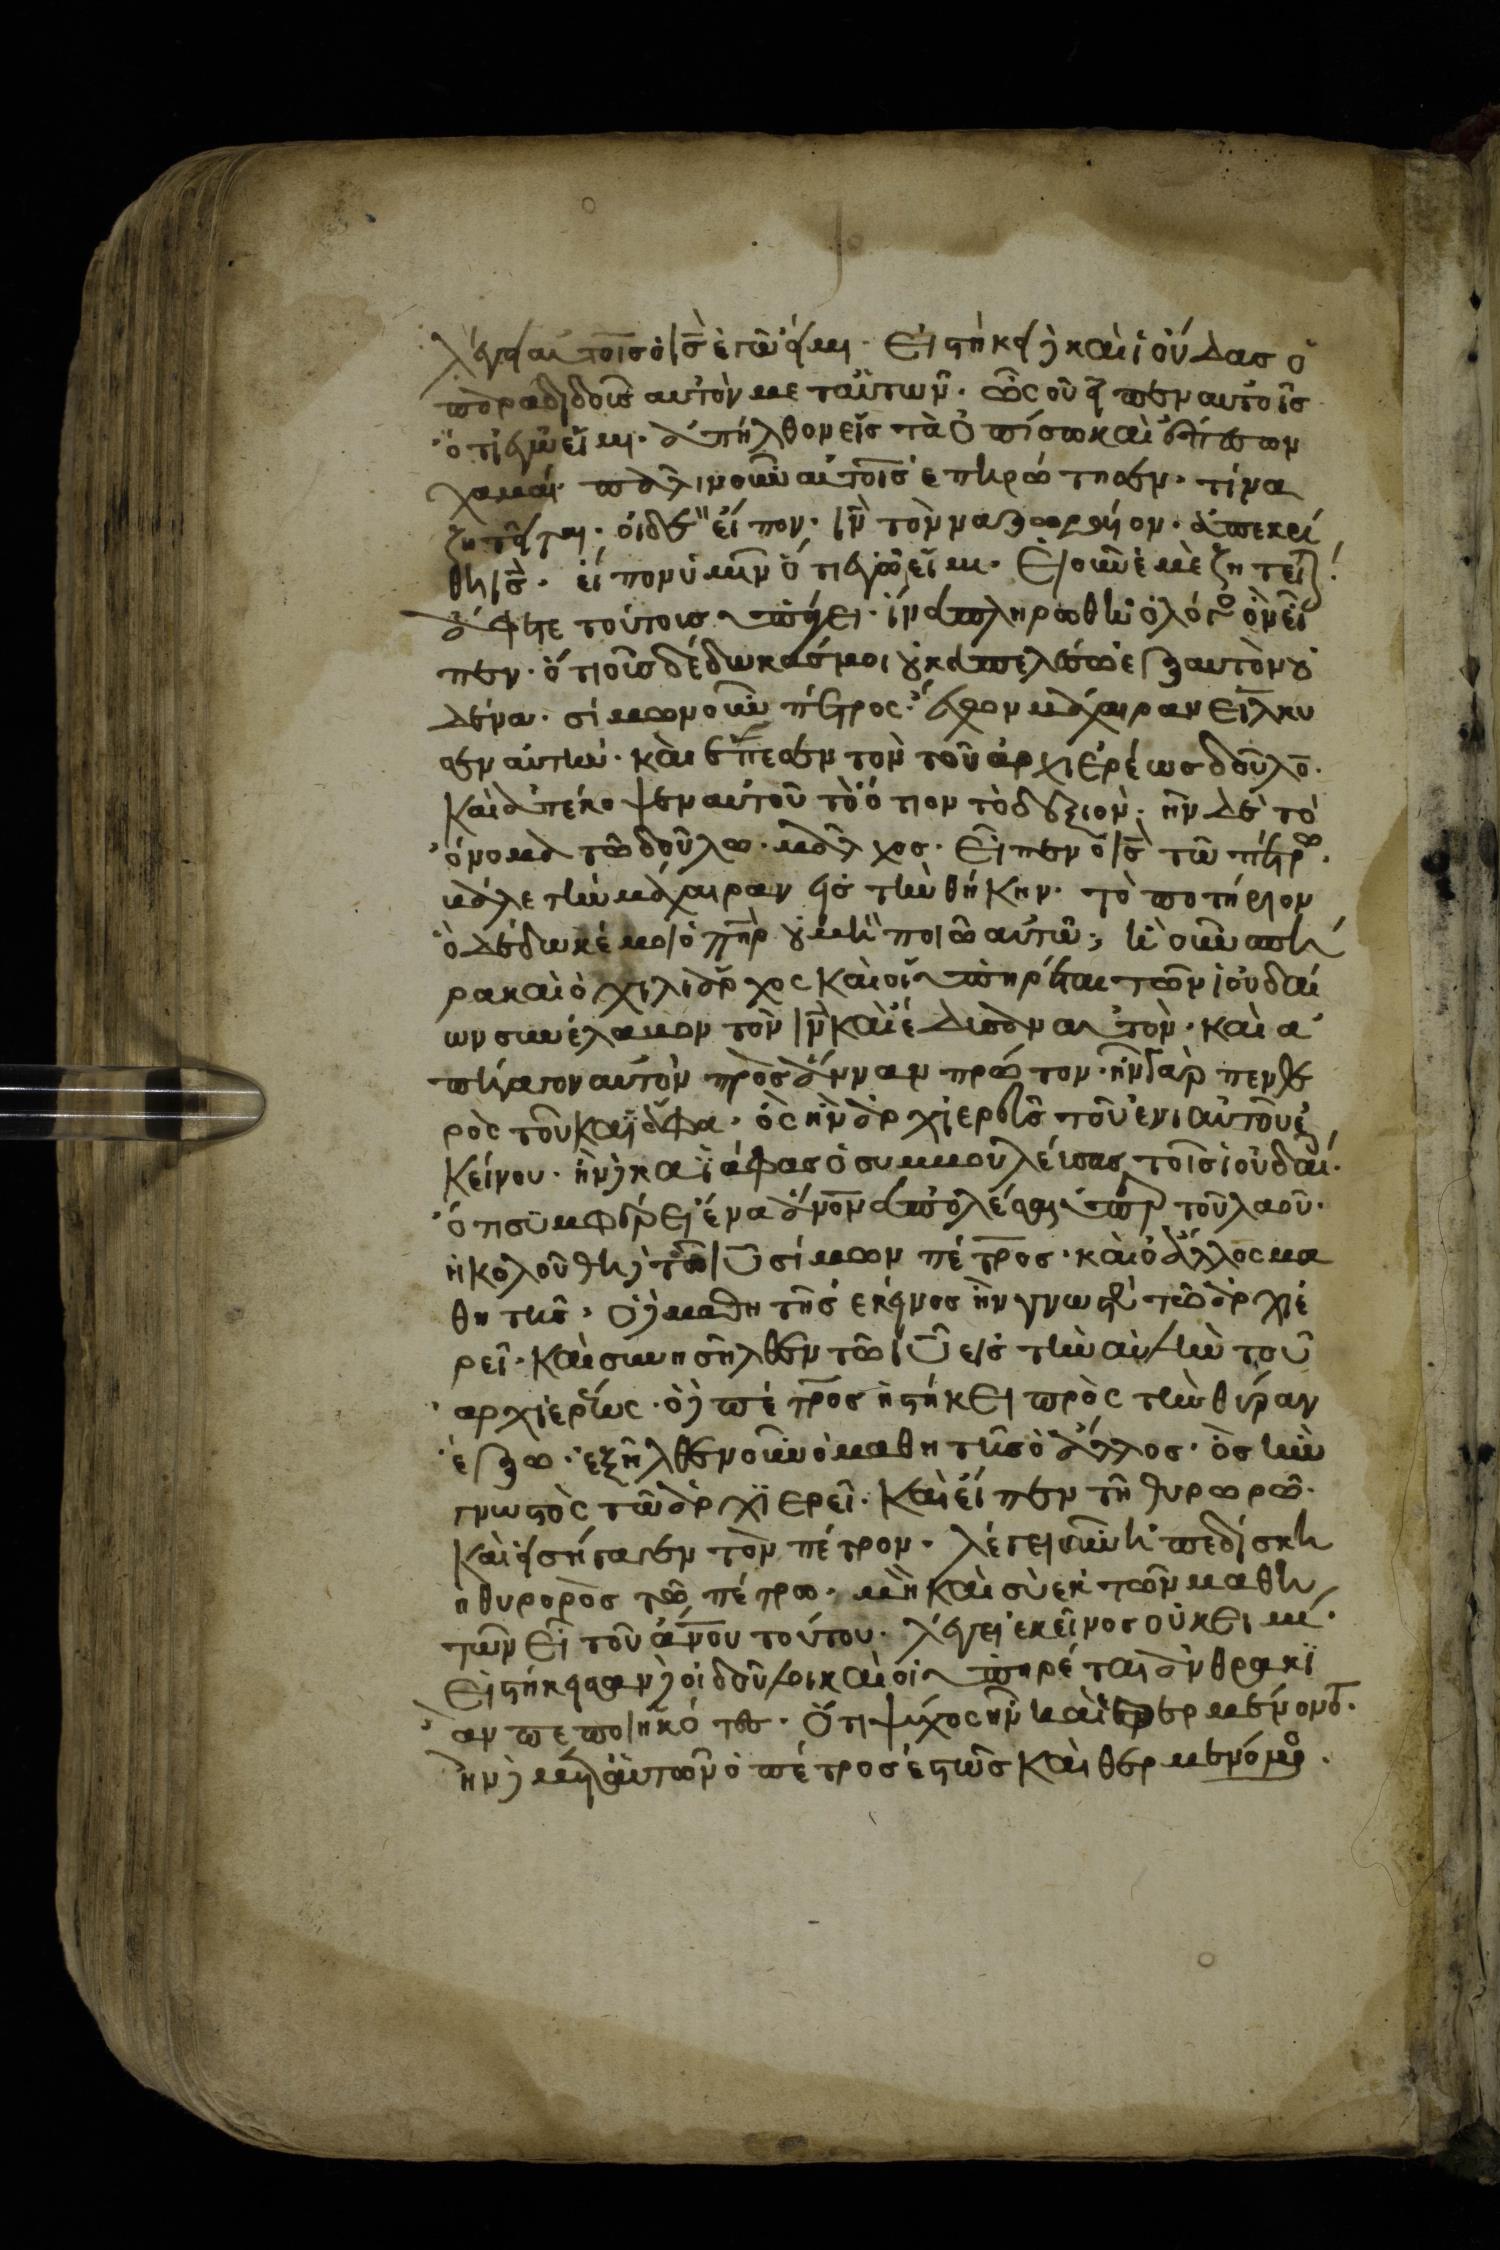 λέγει αὐτοῖς ὁ ι̅ς̅ ἐγώ εἰμι· Εἱστήκει δὲ καὶ ἰούδας ὁ
παραδιδοὺς αὐτὸν μετ' αὐτῶν· ὡς οὖν εἶπεν αὐτοῖς
ὅτι ἐγώ εἰμι· ἀπῆλθον εἰς τὰ ὀπίσω καὶ ἔπεσον
χαμαί· πάλιν οὖν αὐτοῖς ἐπηρώτησεν· τίνα
ζητεῖται· οἱ δὲ εἶπον· ι̅ν̅ τὸν ναζωραῖον· ἀπεκρί
θη ι̅ς̅· εἶπον ὑμῖν ὅτι ἐγώ εἰμι· Εἰ οὖν ἐμὲ ζητεῖτε
ἄφετε τούτοις ὑπάγει· ἵνα πληρωθῆ ὁ λόγος ὃν εἶ
πεν· ὅτι οὓς δέδωκάς μοι οὐκ ἀπελεσα ἐξ αὐτὸν οὐ
δένα· σίμων οὖν πέτρος ἔχων μάχαιραν εἵλκυ
σεν αὐτὴν· καὶ ἔπεσεν τὸν τοῦ ἀρχιερέως δοῦλο̅·
Καὶ ἀπέκοψεν αὐτοῦ τὸ ὀτίον τὸ δεξιὸν· ἦν δὲ τὸ
ὄνομα τῶ δούλω· μάλχος· Εἶπεν ὁ ι̅ς̅ τῶ πέτρω·
βάλε τὴν μάχαιραν εἰς τὴν θήκην· τὸ ποτήριον
ὃ δέδωκέ μοι ὁ π̅η̅ρ̅ οὐ μὴ ποιῶ αὐτῶ; ἡ οὖν σπή
ρα καὶ ὁ χιλίαρχος καὶ οἱ ὑπηρέται τῶν ἰουδαί
ων συνέλαβον τὸν ι̅ν̅ καὶ ἔδισαν αὐτὸν· καὶ ἀ
πήγαγον αὐτὸν πρὸς ἄνναν πρῶτον· ἦν γὰρ πενθε
ρὸς τοῦ καϊάφα· ὃς ἦν ἀρχιερεὺς τοῦ ἐνιαυτοῦ ἐ
κείνου· ἦν δὲ καϊάφας ὁ συμβουλεύσας τοῖς ἰουδαί·
ὅτι συμφέρει ἕνα α̅ν̅ο̅ν̅ ἀπολέσαι ὑπὲρ τοῦ λαοῦ·
ἠκολούθη δὲ τῶ ι̅υ̅ σίμων πέτρος· καὶ ὁ ἄλλος μα
θητὴς· ὁ δὲ μαθητὴς ἐκεῖνος ἦν γνωστὸς τῶ ἀρχιε
ρεῖ· καὶ συνησῆλθεν τῶ ι̅υ̅ εἰς τὴν αὐλὴν τοῦ
ἀρχιερέως· ὁ δὲ πέτρος ἡστήκει πρὸς τὴν θύραν
ἔξω· ἐξῆλθεν οὖν ὁ μαθητὴς ὁ ἄλλος· ὃς ἦν
γνωστὸς τῶ ἀρχιερεῖ· καὶ εἶπεν τῆ θυρωρῶ·
καὶ εἰσήγαγεν τὸν πέτρον· λέγει οὖν ἡ πεδίσκη
ἡ θυρορὸς τῶ πέτρω· μὴ καὶ σὺ ἐκ τῶν μαθη
τῶν εἶ τοῦ α̅ν̅ο̅υ̅ τούτου· λέγει ἐκεῖνος οὐκ εἰμί·
Εἱστήκεισαν δὲ οἱ δοῦλοι καὶ οἱ ὑπηρέται ἀνθρακι
ὰν πεποιηκότες· Ὅτι ψύχος ἦν καὶ ἐθερμένοντ·
ἦν δὲ μετ' αὐτῶν ὁ πέτρος ἑστὼς καὶ θερμενόμενος·